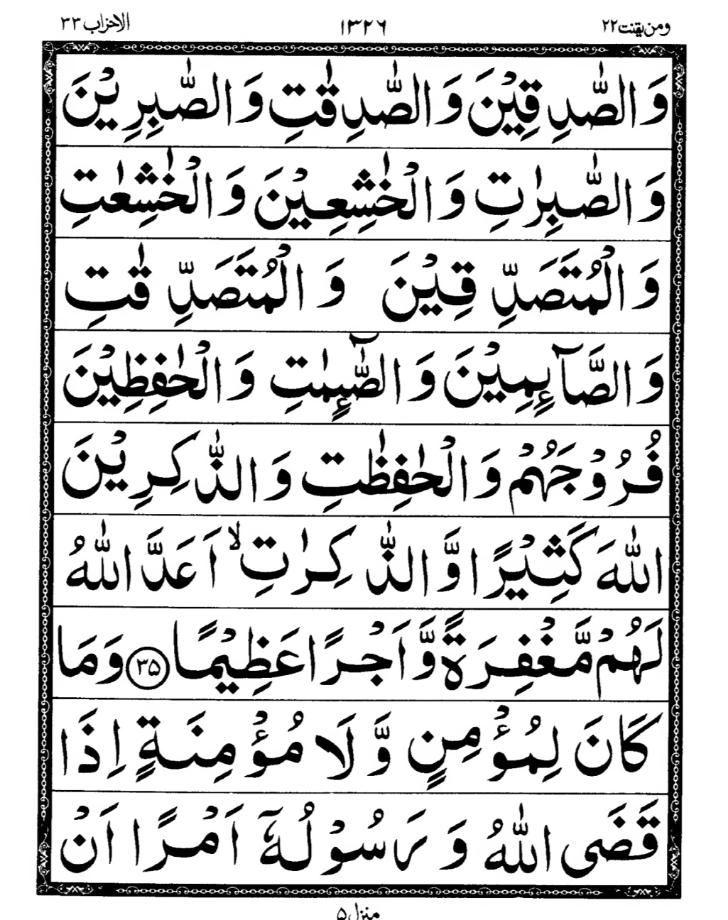 ومن یقنت ۲۲ ۱۳۲۶ الاحزاب ۳۳
وَالصّٰدِقِیْنَ وَالصّٰدِقٰتِ وَالصّٰبِرِیْنَ
وَالصّٰبِرٰتِ وَالْخٰشِعِیْنَ وَالْخٰشِعٰتِ
وَالْمُتَصَدِّقِیْنَ وَالْمُتَصَدِّقٰتِ
وَالصَّآىِٕمِیْنَ وَالصّٰٓىِٕمٰتِ وَالْحٰفِظِیْنَ
فُرُوْجَهُمْ وَالْحٰفِظٰتِ وَالذّٰكِرِیْنَ
اللّٰهَ كَثِیْرًا وَّالذّٰكِرٰتِ ۙ اَعَدَّ اللّٰهُ
لَهُمْ مَّغْفِرَةً وَّاَجْرًا عَظِیْمًا ﴿۳۵﴾ وَمَا
كَانَ لِمُؤْمِنٍ وَّلَا مُؤْمِنَةٍ اِذَا
قَضَی اللّٰهُ وَرَسُوْلُهٗۤ اَمْرًا اَنْ
منزل ۵